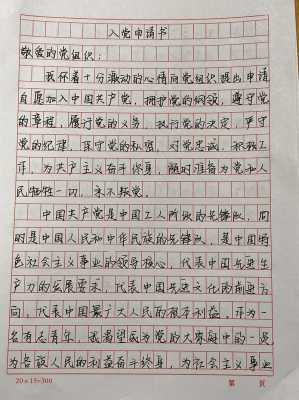 入党申请书
敬爱的党组织：
我怀着十分激动的心情向党组织提出申请
自愿加入中国共产党，拥护党的纲领，遵守党
的章程，履行党的义务，执行党的决定，严守
党的纪律，保守党的秘密，对党忠诚，积极工
作，为共产主义奋斗终身，随时准备为党和人
民牺牲一切，永不叛党。
中国共产党是中国工人阶级的先锋队，同
时是中国人民和中华民族的先锋队，是中国特
色社会主义事业的领导核心，代表中国先进生
产力的发展要求，代表中国先进文化的前进方
向，代表中国最广大人民的根本利益。作为一
名有志青年，我希望成为党的大家庭中的一员
为各族人民的利益奋斗终身，为社会主义事业
20×15=300 第 页